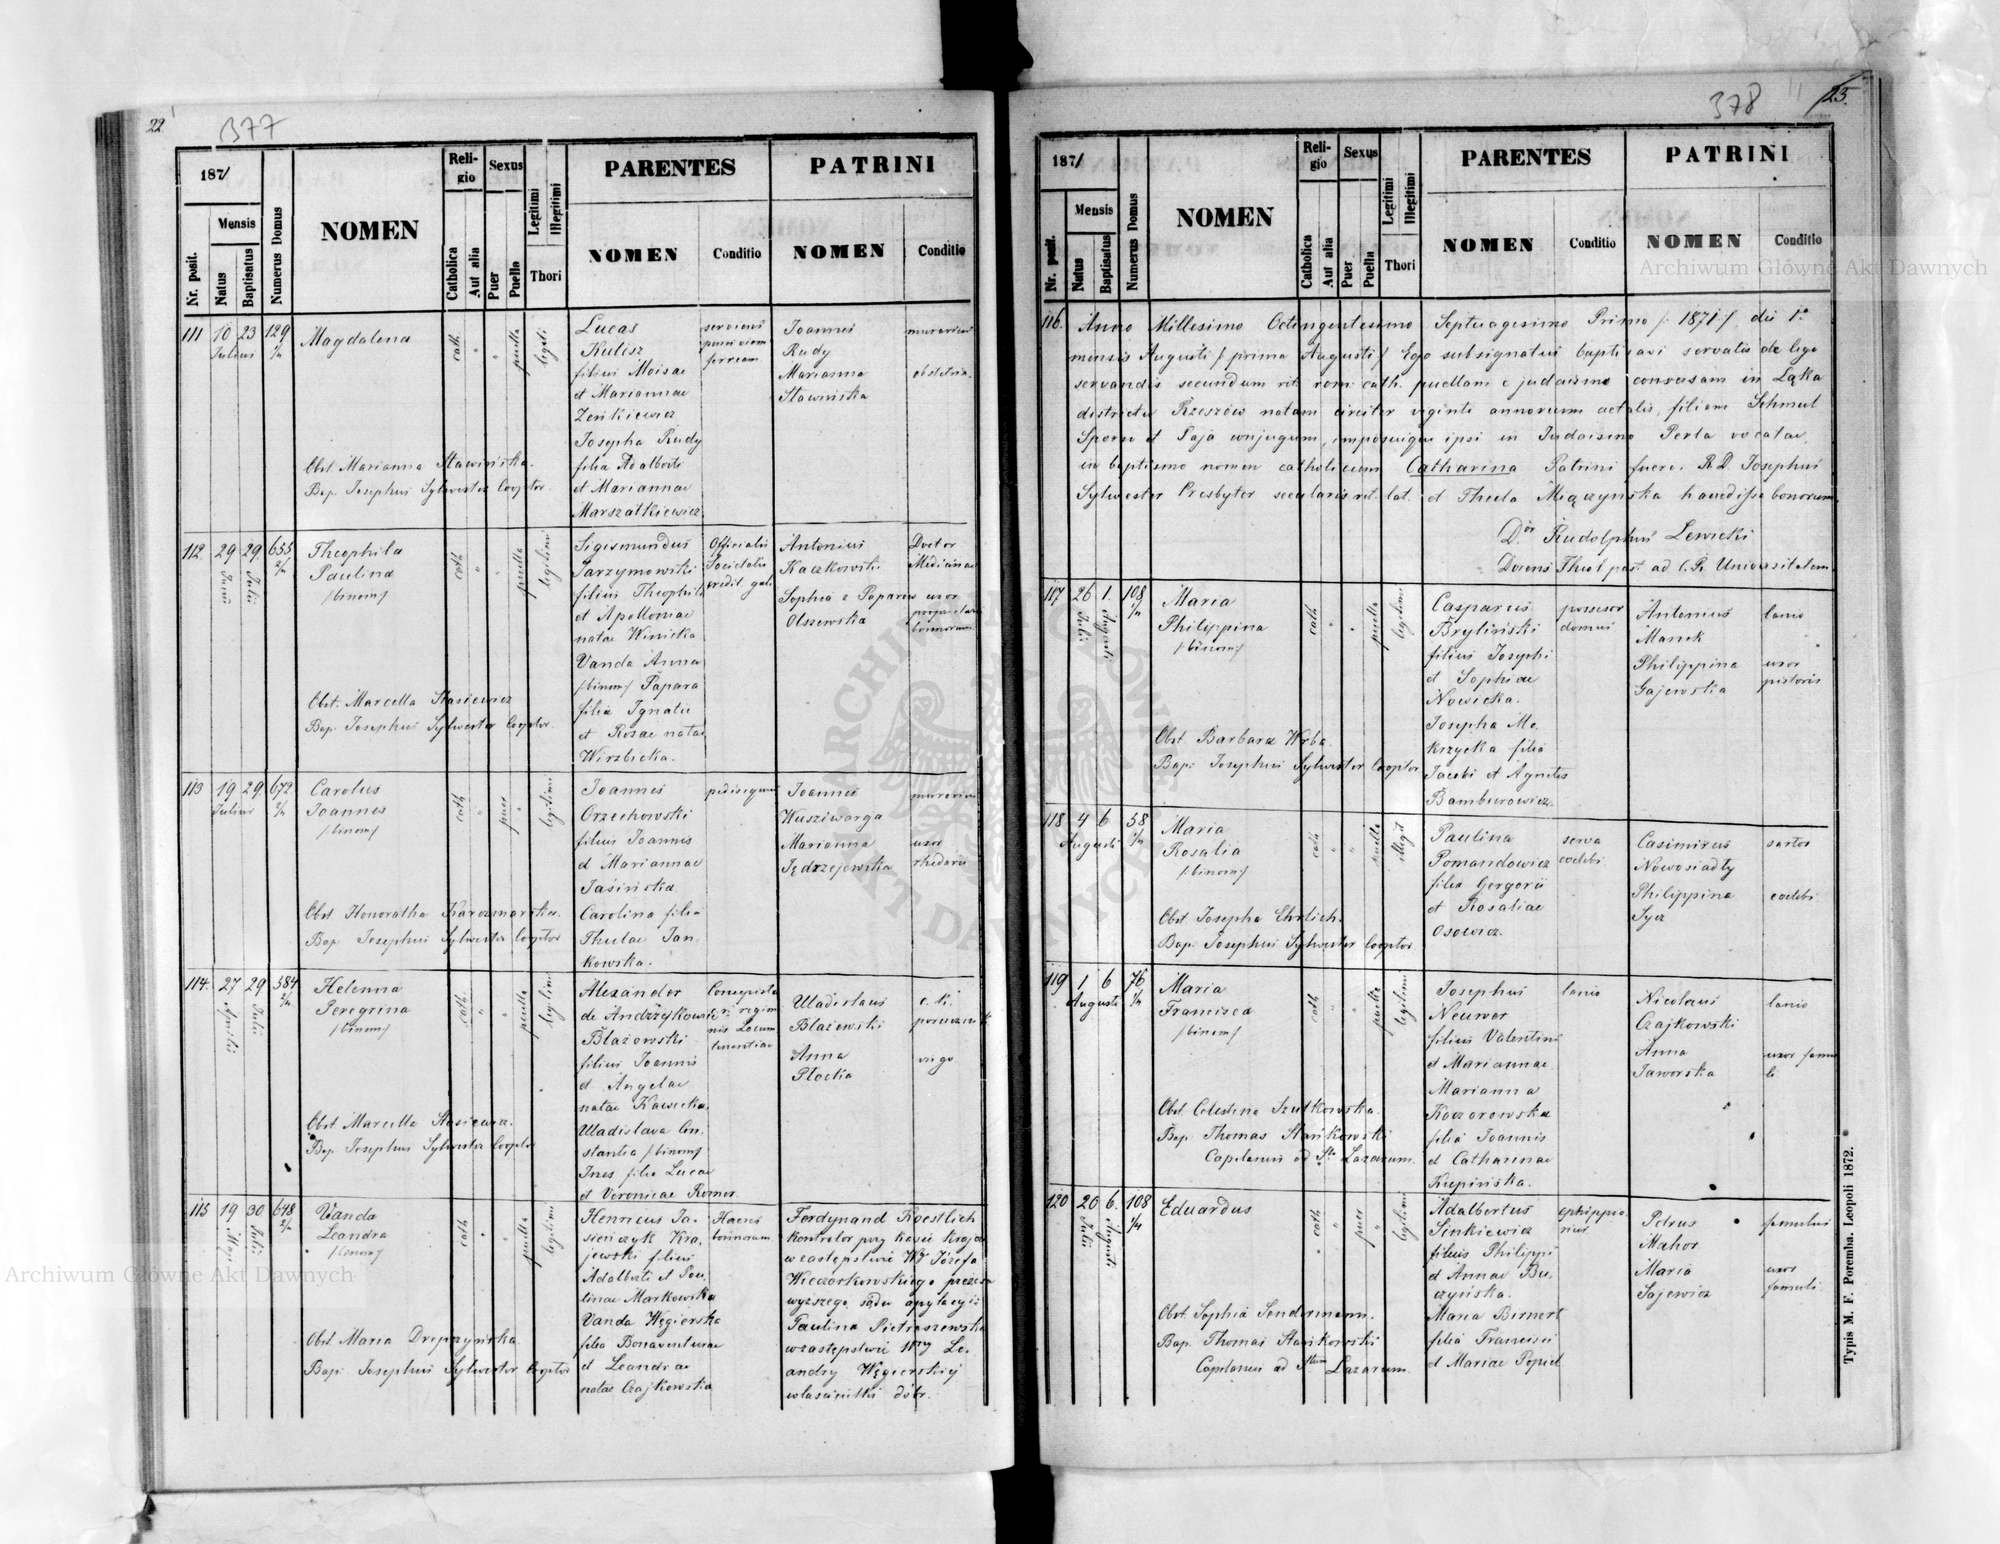 22
377
187/
Nr. posit.
Mensis
Natus
Baptisatus
Numerus Domus
NOMEN
Religio
Catholica
Aut alia
Sexus
Puer
Puella
Legitimi
Illegitimi
Thori
PARENTES
NOMEN
Conditio
PATRINI
NOMEN
Conditio
111 10 23 129
Julius
Magdalena
cath.
puella
legiti
Lucas
Kulisz
filius Moisae
et Mariannae
Zenkiewicz
Josepha Rudy
filia Adalberti
et Mariannae
Marszałkiewicz
serviens
ferream
Joannes
Rudy
Marianna
Stawińska
murarius
obstetrix
Obst. Marianna Stawińska.
Bap. Josephus Sylwester Cooptor.
112 29 29 655
Junii
Julii
Theophila
Paulina
/binom/
cath
puella
legitimi
Sigismundus
Jarzymowski
filius Theophili
et Apolloniae
natae Winicka
Vanda Anna
/binom/ Papara
filia Ignatii
et Rosae natae
Wirzbicka.
Officialis
Societatis
credit. gali
Antonius
Kaczkowski
Sophia e Paparow
Olszewska
Doctor
Medicinae
uxor
bonorum
Obst. Marcella Stasiewicz
Bap. Josephus Sylwester Cooptor.
113 19 29 672
Julius
Carolus
Joannes
/binom/
cath
puer
legitimi
Joannes
Orzechowski
filius Joannis
et Mariannae
Jasińska
Carolina filia
Theclae Jan-
kowska.
pedisequus
Joannes
Wusziwarga
Marianna
Jędrzejewska
murarius
uxor
rhedarii
Obst Honoratha Karczmarska.
Bap. Josephus Sylwester Cooptor
114. 27 29 584
Aprilis
Julii
Helenna
Peregrina
/binom/
cath.
puella
legitimi
Alexander
de Andrzykowice
Błażowski
filius Joannis
et Angelae
natae Kawecka.
Uladislava Con-
stantia /binom/
Ines filia Lucae
et Veronicae Romer.
Concepista
c. r. regim
nis Locum
tenentiae
Uladislaus
Błażewski
Anna
Płocka
c. k.
porucznik
virgo
Obst Marcella Stasiewicz.
Bap. Josephus Sylwester Cooptor
115 19 30 648
Maji
Julii
Vanda
Leandra
/binom/
cath
puella
legitimi
Henricus Ja-
sieńczyk Kra-
jewski filius
Adalberti et Pau-
linae Markowska
Vanda Węgierska
filia Bonaventurae
et Leandrae
natae Czajkowska
Haeres
bonorum
Ferdynand Koestlich
kontrolor przy kasie kraj.
w zastępstwie Wgo Józefa
Wieczorkowskiego prezesa
wyższego sądu apylacyi i
Paulina Pietraszewska
w zastępstwie Wny Le-
andry Węgierskiej
właścicielki dóbr.
Obst. Maria Drepczyńska.
Bap. Josephus Sylwester Cooptor
378
23.
187/
Nr. posit.
Mensis
Natus
Baptisatus
Numerus Domus
NOMEN
Religio
Catholica
Aut alia
Sexus
Puer
Puella
Legitimi
Illegitimi
Thori
PARENTES
NOMEN
Conditio
PATRINI
NOMEN
Conditio
116. Anno Millesimo Octingentesimo Septuagesimo Primo /: 1871 :/ die 1a
mensis Augusti / prima Augusti / Ego subsignatus baptisavi servatis de lege
servandis secundum rit. rom. cath. puellam e judaismo conversam in Łąka
districtu Rzeszów natam circiter viginti annorum aetatis, filiam Schmul
Sperse et Paja conjugum, imposuique ipsi in Judaismo Perla vocatae,
in baptismo nomen catholicum Catharina Patrini fuere. R. D. Josephus
Sylwester Presbyter secularis rit. lat. et Thecla Miączyńska haeredissa bonorum
Dor Rudolphus Lewicki
Docens Theol past. ad C. R. Universitatem.
117 26 1. 108
Julii
Augusti
Maria
Philippina
/binom/
cath
puella
legitimi
Casparus
Bryliński
filius Josephi
et Sophiae
Nowicka.
Josepha Mo-
krzycka filia
Jacobi et Agnetis
Bamburowicz.
possesor
domus
Antonius
Manek
Philippina
Gajewska
lanio
uxor
pistoris
Obst Barbara Wrba.
Bap. Josephus Sylwester Cooptor
118 4 6 58
Augusti
Maria
Rosalia
/binom/
cath
puella
illegit
Paulina
Pomandowicz
filia Gregorii
et Rosaliae
Osowicz.
serva
coelebs.
Casimirus
Nowosiadły
Philippina
Syez
sartor
coelebs.
Obst Josepha Ehrlich.
Bap. Josephus Sylwester Cooptor
119 1 6 76
Augusti
Maria
Francisca
/binom/
cath
puella
legitimi
Josephus
Neuwer
filius Valentini
et Mariannae.
Marianna
Koczorowska
filia Joannis
et Catharinae
Kupińska.
lanio
Nicolaus
Czajkowski
Anna
Jaworska
lanio
uxor famu
li
Obst Celestina Szutkowska.
Bap. Thomas Stańkowski
Capelanus ad Stum Lazarum.
120 20 6. 108
Julii
Augusti
Eduardus
cath
puer
legitimi
Adalbertus
Sinkiewicz
filius Philippi
et Annae Bu-
czyńska.
Maria Birnert
filia Francisci
et Mariae Popiel
ephippia-
rius.
Petrus
Mahor
Maria
Sajewicz
famulus
uxor
famuli.
Obst. Sophia Sendermann.
Bap. Thomas Stańkowski
Capelanus ad Stum Lazarum.
Typis M. F. Poremba. Leopoli 1872.
Archiwum Główne Akt Dawnych
Archiwum Główne Akt Dawnych
ARCHIWUM GŁÓWNE AKT DAWNYCH